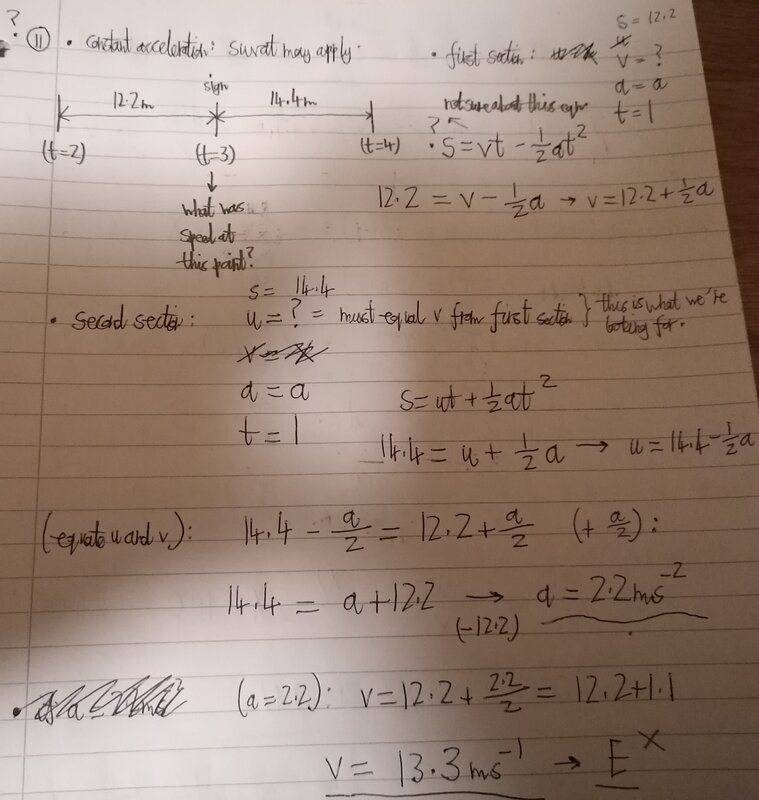 ?
⑪ • constant acceleration: suvat may apply.
sign
12.2m 14.4m
(t=2) (t=3) (t=4)
what was
speed at
this point?
• first section:
s = 12.2
v = ?
a = a
t = 1
not sure about this eqn
?
• s = vt - 1/2at²
12.2 = v - 1/2a → v = 12.2 + 1/2a
• second section:
s = 14.4
u = ? = must equal v from first section } this is what we're
looking for.
a = a
t = 1
s = ut + 1/2at²
14.4 = u + 1/2a → u = 14.4 - 1/2a
(equate u and v): 14.4 - a/2 = 12.2 + a/2 (+ a/2):
14.4 = a + 12.2 → a = 2.2ms⁻²
(-12.2)
• (a = 2.2): v = 12.2 + 2.2/2 = 12.2 + 1.1
v = 13.3ms⁻¹ → E x